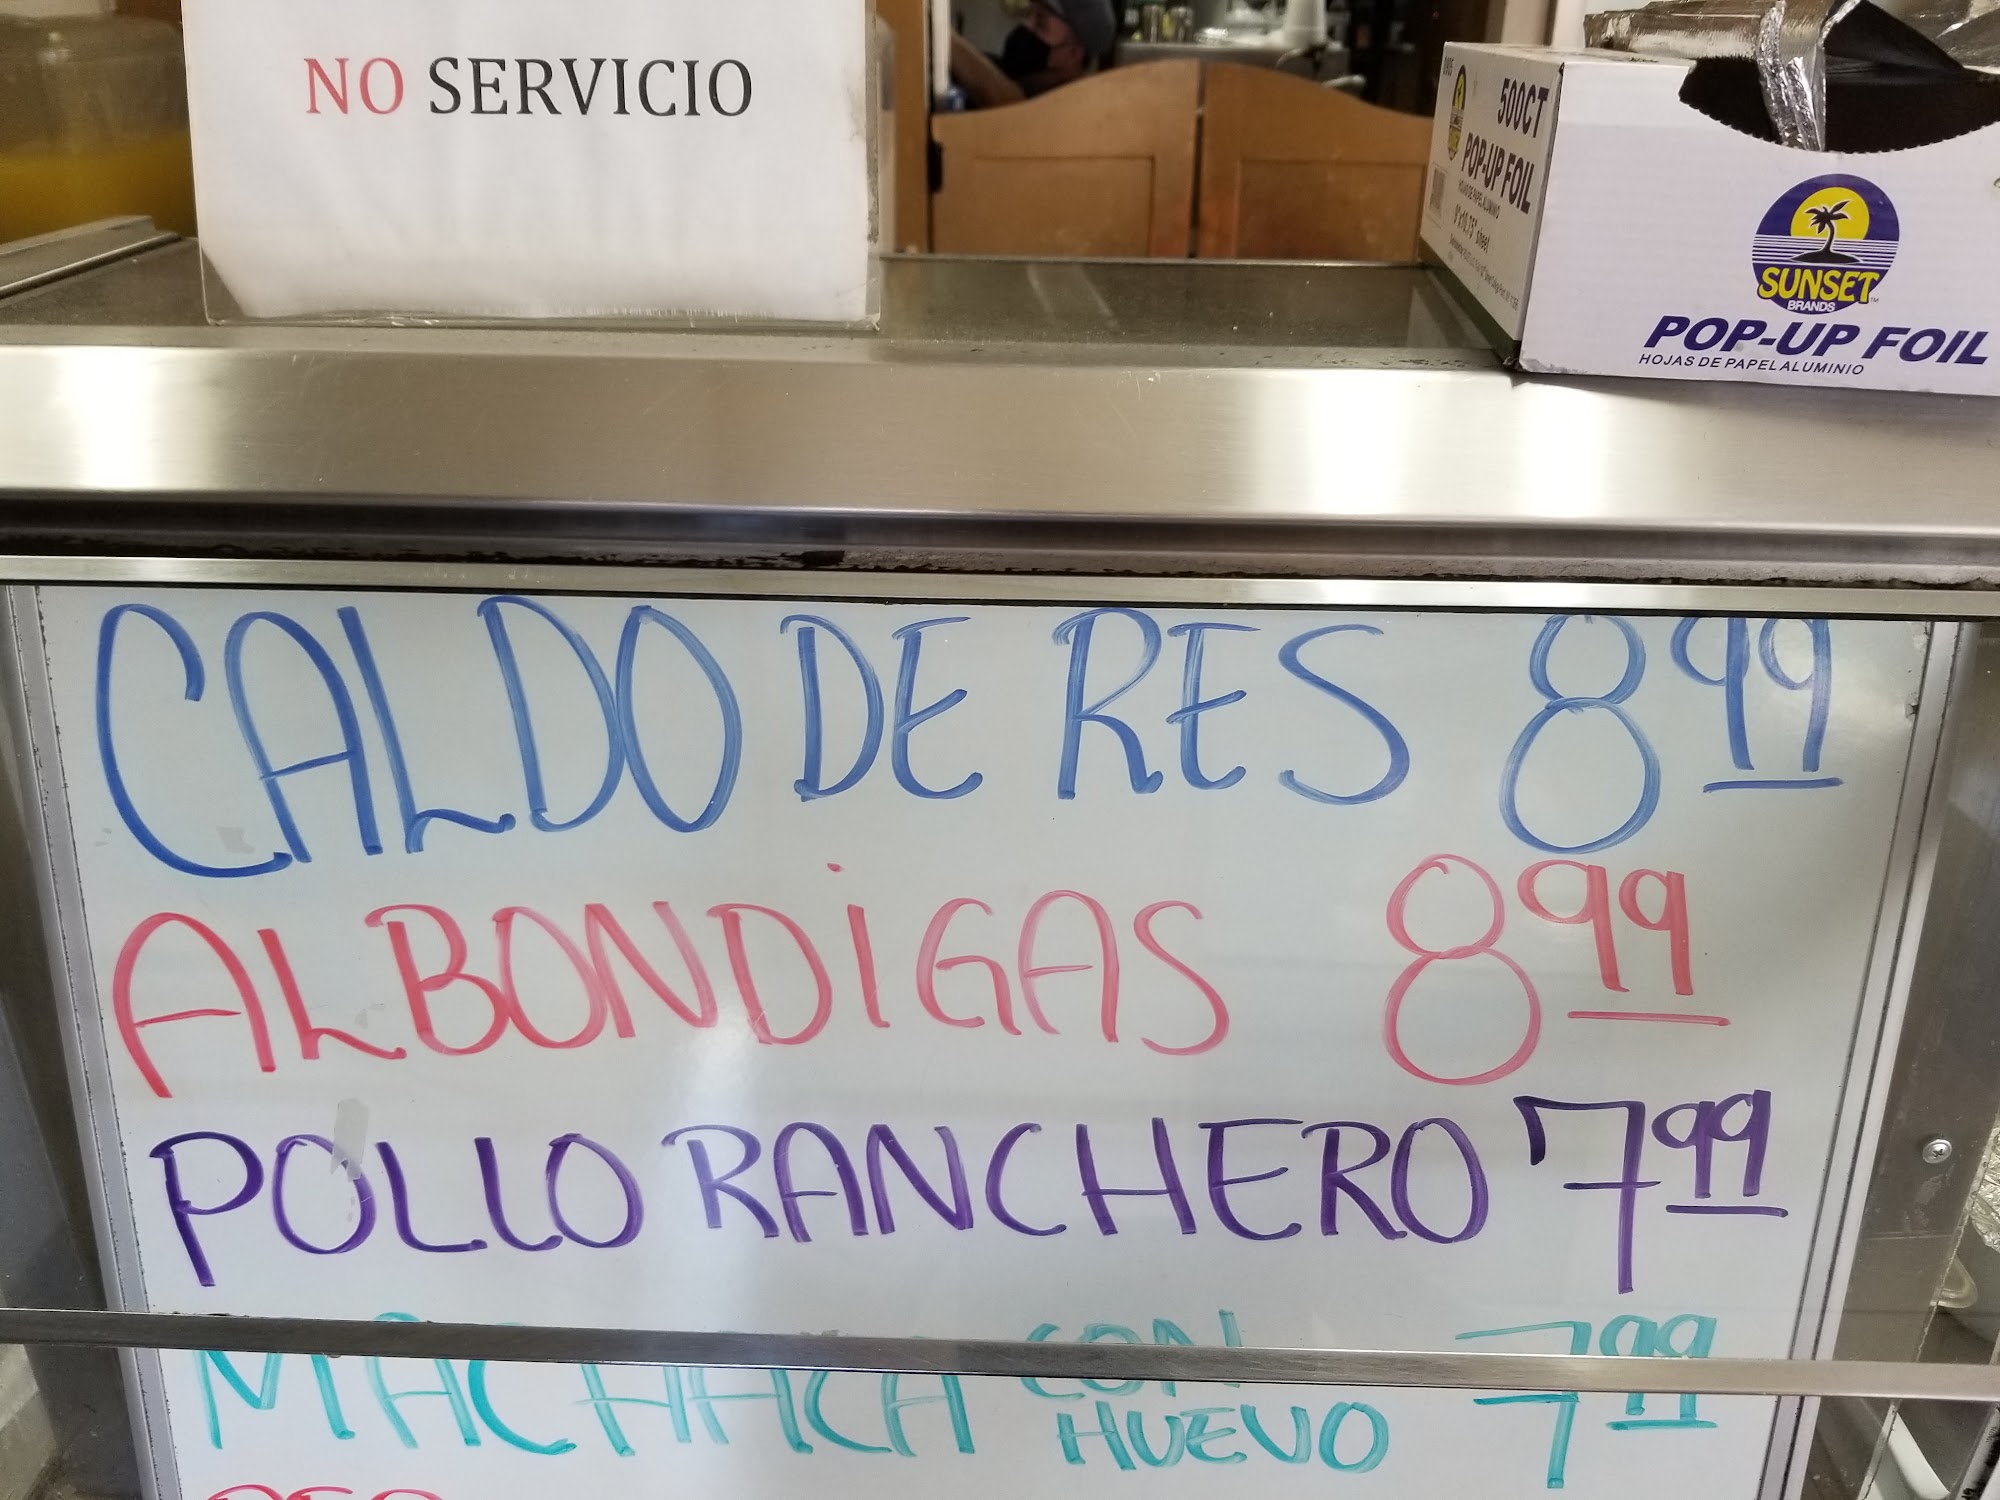 NO SERVICIO
500CT
POP-UP FOIL
HOJAS DE PAPEL ALUMINIO
9"x10.75" sheet
SUNSET
BRANDS
POP-UP FOIL
HOJAS DE PAPEL ALUMINIO
CALDO DE RES 8 99
ALBONDiGAS 8 99
POLLO RANCHERO 7 99
MACHACA CON HUEVO 7 99